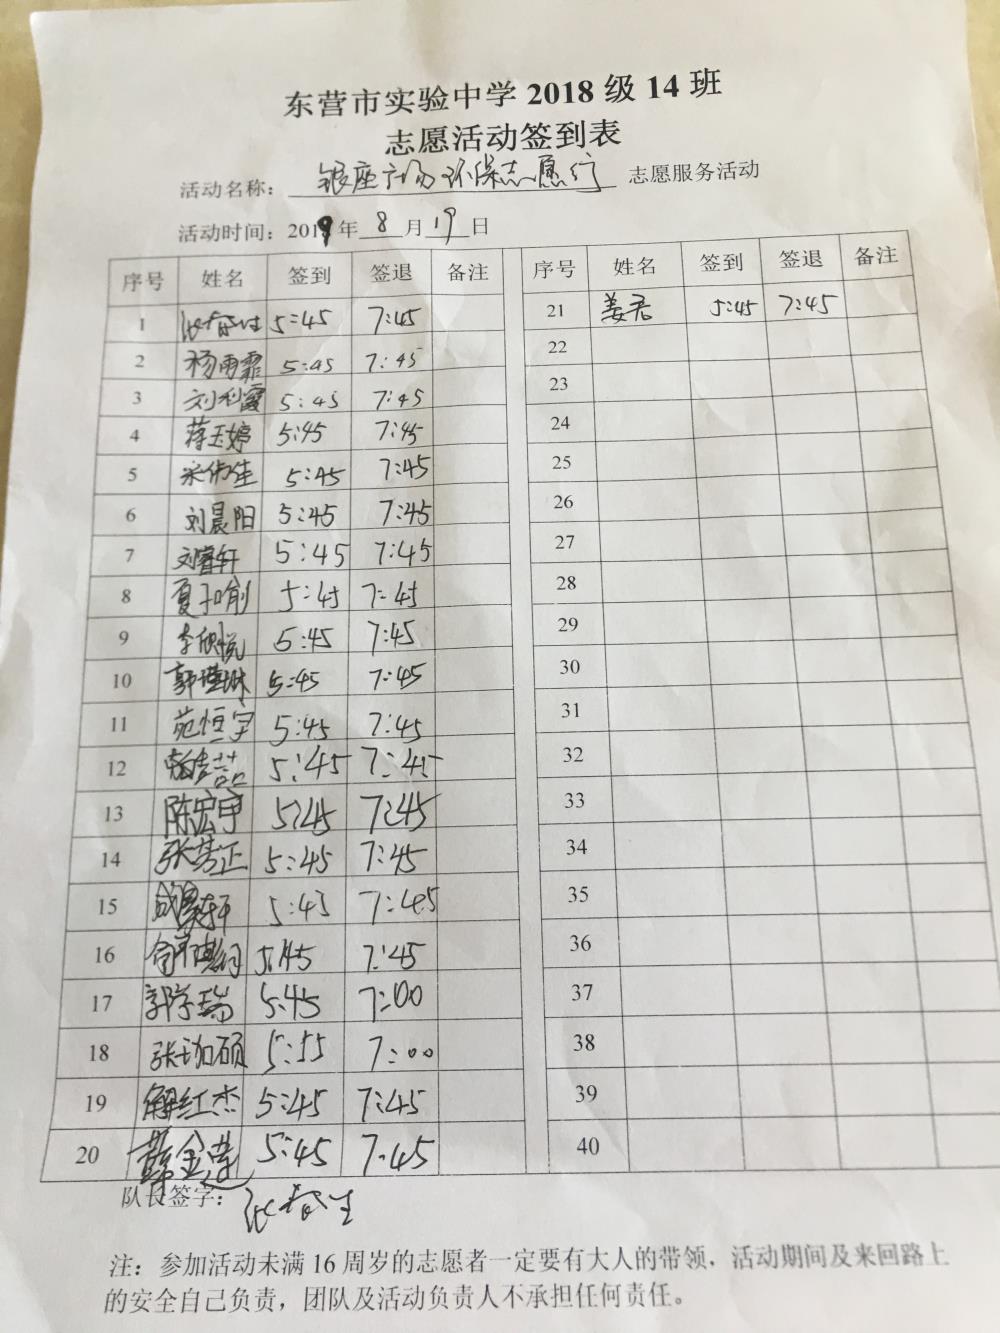 东营市实验中学 2018 级 14 班
志愿活动签到表
活动名称： 银座广场环保志愿行 志愿服务活动
活动时间：2019年 8 月 19 日
序号 姓名 签到 签退 备注 序号 姓名 签到 签退 备注
1 5:45 7:45 21 姜君 5:45 7:45
2 杨雨霏 5:45 7:45 22
3 刘利霞 5:45 7:45 23
4 蒋玉婷 5:45 7:45 24
5 5:45 7:45 25
6 刘晨阳 5:45 7:45 26
7 刘睿轩 5:45 7:45 27
8 夏子喻 5:45 7:45 28
9 李欣悦 5:45 7:45 29
10 郭瑾琳 5:45 7:45 30
11 苑恒宇 5:45 7:45 31
12 5:45 7:45 32
13 陈宏宇 5:45 7:45 33
14 5:45 7:45 34
15 5:45 7:45 35
16 5:45 7:45 36
17 5:45 7:00 37
18 张珈硕 5:55 7:00 38
19 解红杰 5:45 7:45 39
20 薛金莲 5:45 7:45 40
队长签字：
注：参加活动未满 16 周岁的志愿者一定要有大人的带领，活动期间及来回路上
的安全自己负责，团队及活动负责人不承担任何责任。